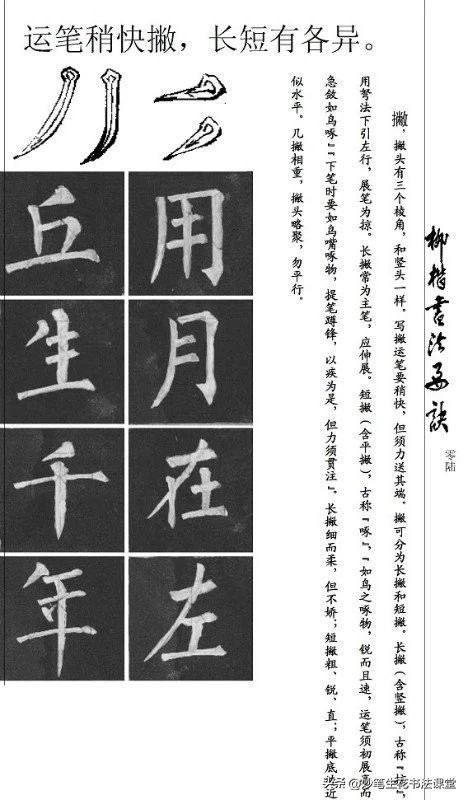 运笔稍快撇，长短有各异。
柳楷书法要诀
零陆
撇，撇头有三个棱角，和竖头一样。写撇运笔要稍快，但须力送其端。撇可分为长撇和短撇。长撇（含竖撇），古称『』，
用弩法下引左行，展笔为掠。长撇常为主笔，应伸展。短撇（含平撇），古称『啄』，『如鸟之啄物，锐而且速，运笔须初展而
急敛如鸟啄』『下笔时要如鸟嘴啄物，捉笔蹲锋，以疾为是，但力须贯注』。长撇细而柔，但不娇；短撇粗、锐、直；平撇底近
似水平。几撇相重，撇头略聚，勿平行。
用
月
在
左
丘
生
千
年
头条 @妙笔生花书法课堂